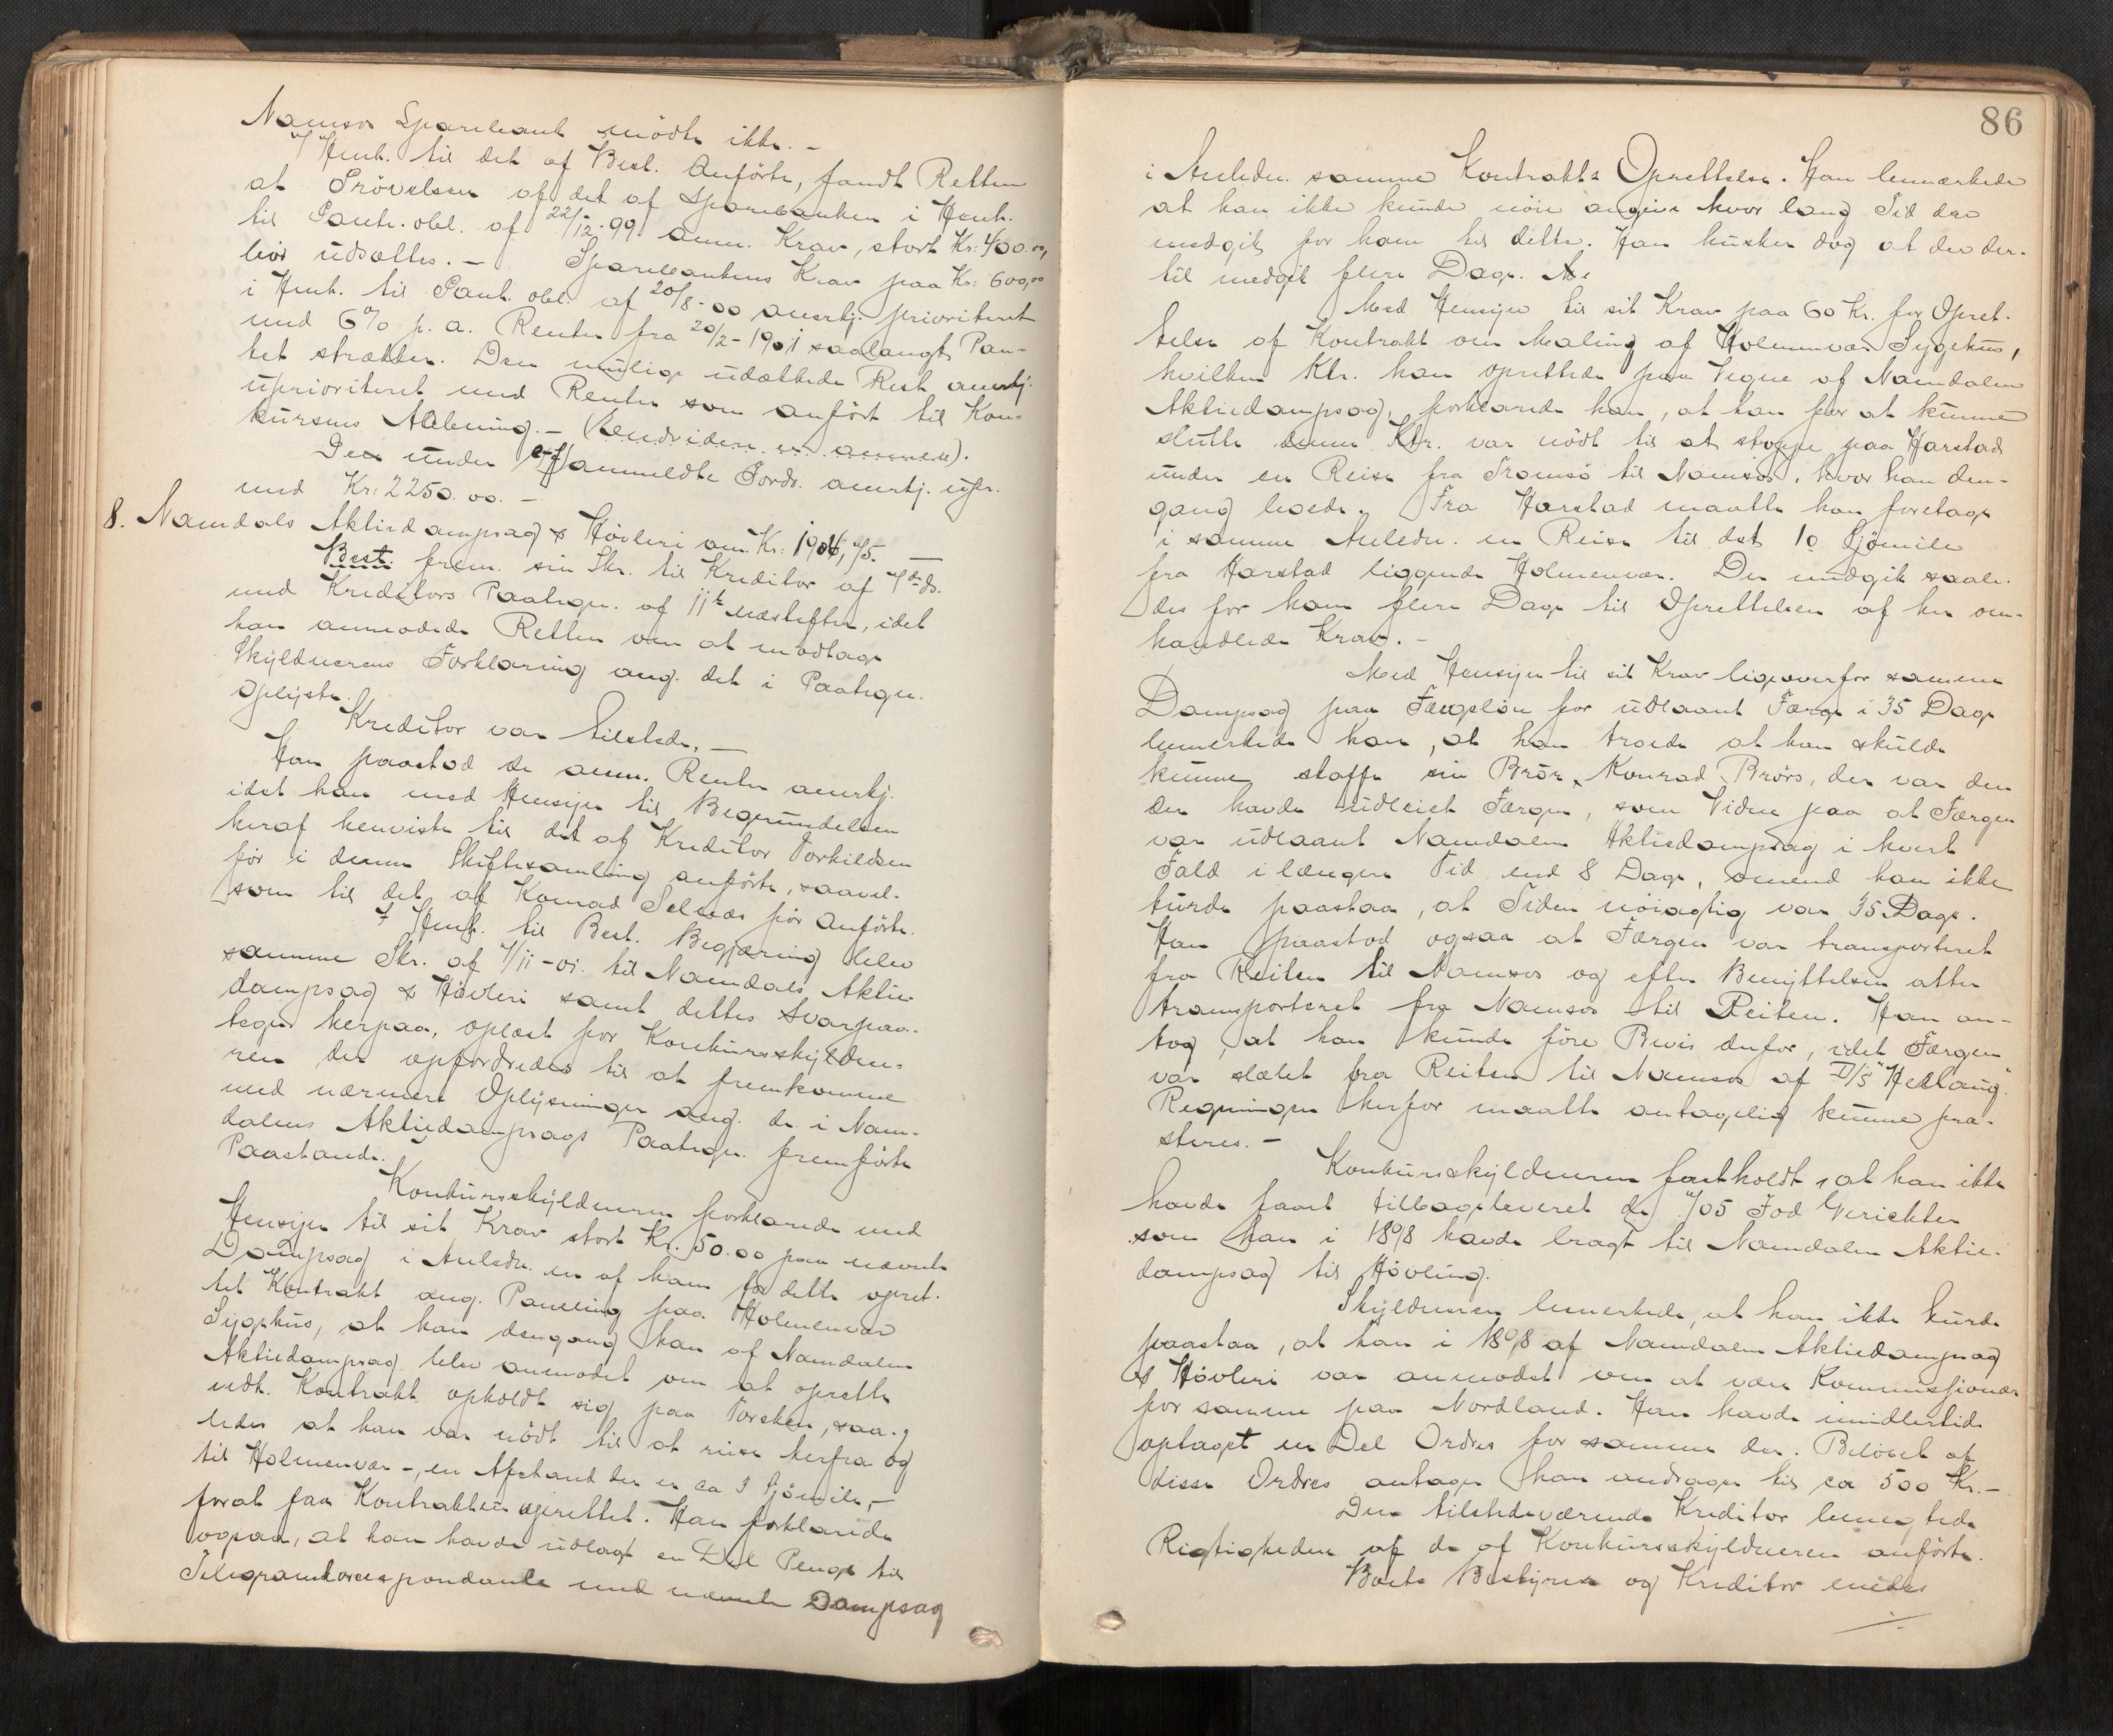 Namsos Sparebank mødte ikke. -
I Henh. til det af Best. Anførte, fandt Retten
at Prøvelsen af det af Sparebanken i Henh.
til Pant. obl. af 22/12-99 anm. Krav, stort Kr: 400.00,
bør udsættes. - Sparebankens Krav paa Kr: 600,00
i Henh. til Pant. obl. af 20/8-00 anerkj. prioriteret
med 6% p. a. Renter fra 20/2-1901 saalangt Pan-
tet strækker. Den mulige udækkede Rest anerkj.
uprioriteret med Renter som anført til Kon-
kursens Aabning. -
Den under anmeldte Fordr. anerkj. upr.
med Kr: 2250.00. -
8. Namdals Aktiedampsag & Høvleri anm. Kr:
Best. frem. sin Skr. til Kreditor af 7de ds.
med Kreditors Paategn. af 11te næstefter, idet
han anmodede Retten om at modtage
Skyldnerens Forklaring ang. det i Paategn.
Oplyste.
Kreditor var tilstede. -
Han paastod de anm. Renter anerkj.
idet han med Hensyn til Begrundelsen
heraf henviste til det af Kreditor Torkildsen
før i denne Skiftesamling anførte, saavel-
som til det af Konrad Selnæs før Anførte.
I Henh. til Best. Begjæring blev
samme Skr. af 7/11-01. til Namdals Aktie-
dampsag & Høvleri samt dettes Svarpaa-
tegn. herpaa, oplæst for Konkursskyldne-
ren der opfordredes til at fremkomme
med nærmere Oplysninger ang. de i Nam-
dalens Aktiedampsags Paategn. fremførte
Paastande.
Konkursskyldneren forklarede med
Hensyn til sit Krav stort Kr. 50.00 paa nævnte
Dampsag i Anledn. en af ham for dette opret-
tet Kontrakt ang. Paneling paa Holmenvær
Sygehus, at han dengang han af Namdalen
Aktiedampsag blev anmodet om at oprette
nævnte Kontrakt opholdt sig paa Torsken, saa-
ledes at han var nødt til at reise herfra og
til Holmenvær -, en Afstand der er ca 3 Sjømile, -
forat faa Kontrakten oprettet. Han forklarede
ogsaa, at han havde udlagt en Del Penge til
Telegramkorrespondance med nævnte Dampsag
86
i Anledn. samme Kontrakts Oprettelse. Han bemærkede
at han ikke kunde nøie angive hvor lang Tid der
medgik for ham til dette. Han husker dog at der der-
til medgik flere Dage.
Med Hensyn til sit Krav paa 60 Kr. for Opret-
telse af Kontrakt om Maling af Holmenvær Sygehus,
hvilken Ktr. han oprettede paa Vegne af Namdalen
Aktiedampsag, forklarede han, at han for at kunne
slutte denne Ktr. var nødt til at stoppe paa Harstad
under en Reise fra Tromsø til Namsos, hvor han den-
gang boede. Fra Harstad maatte han foretage
i samme Anledn. en Reise til det 10 Sjømile
fra Harstad liggende Holmenvær. Der medgik saale-
des for ham flere Dage til Oprettelsen af her om-
handlede Krav. -
Med Hensyn til sit Krav ligeoverfor samme
Dampsag paa Færgeløn for udlaant Færge i 35 Dage
bemerkede han, at han troede at han skulde
kunne skaffe sin Bror, Konrad Brørs, der var den
der havde udleiet Færgen, som Viden paa at Færgen
var udlaant Namdalen Aktiedampsag i hvert
Fald i længere Tid end 8 Dage, omend han ikke
turde paastaa, at Tiden nøiagtig var 35 Dage.
Han paastod ogsaa at Færgen var transporteret
fra Reiten til Namsos og efter Benyttelsen atter
transporteret fra Namsos til Reiten. Han an-
tog, at han kunde føre Bevis derfor, idet Færgen
var slæbt fra Reiten til Namsos af D/S "Hellaug".
Regningen herfor maatte antagelig kunne præ-
steres. -
Konkursskyldneren fastholdt, at han ikke
havde faaet tilbageleveret de Fod Gerichter
som han i 1898 havde bragt til Namdalen Aktie-
dampsag til Høvling.
Skyldneren bemerkede, at han ikke turde
paastaa, at han i 1898 af Namdalen Aktiedampsag
& Høvleri var anmodet om at være Kommissionær
for samme paa Nordland. Han havde imidlertid
optaget en Del Ordres for samme der. Beløbet af
disse Ordres antager han andrager til ca 500 Kr. -
Den tilstedeværende Kreditor benegtede
Rigtigheden af de af Konkursskyldneren anførte.
Boets Bestyrer og Kreditor enedes